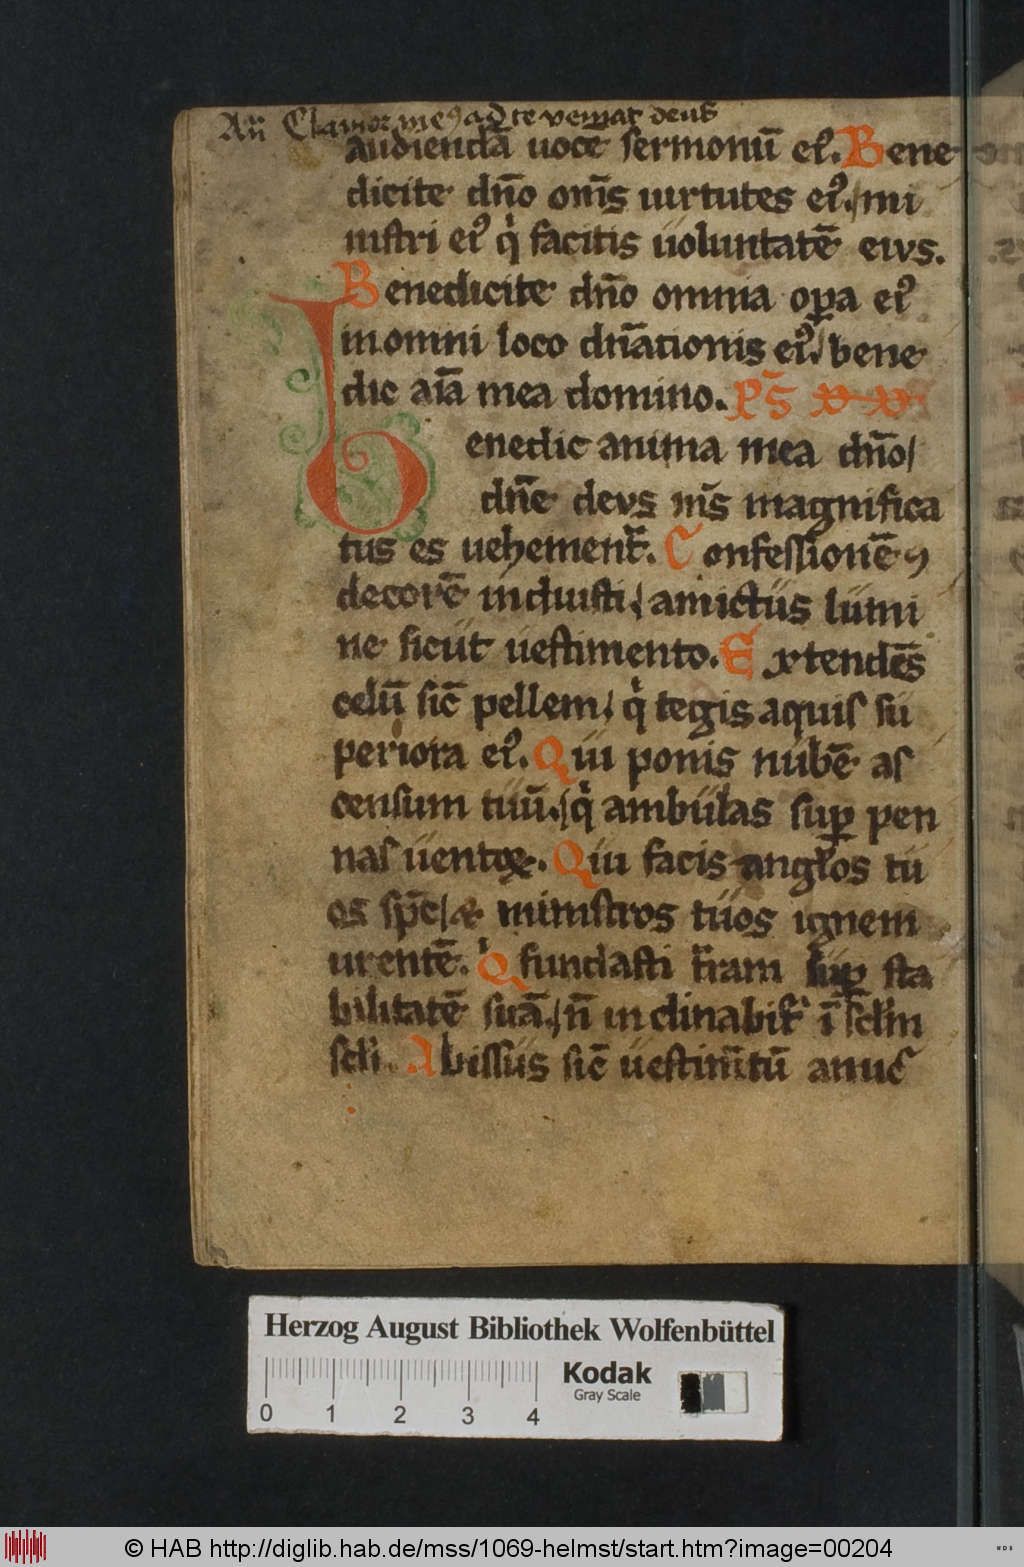 An̄ Clamor me9 ad te veniat deus
audiendā uoce sermonū ei9. Bene
dicite dn̄o om̄s uirtutes ei9./mi
nistri ei9 qͥ facitis uoluntatē eivs.
Benedicite dn̄o omnia oꝑa ei9
in omni loco dn̄ationis ei9/ bene
dic aīa mea domino. P̄S
Benedic anima mea dn̄o/
dn̄e devs m̄s magnifica
tus es uehement̄. Confessionē 9
decorē induisti/ amictus lumi
ne sicut uestimento. Extendēs
celū sic̄ pellem/ qͥ tegis aquis su
periora ei9. Qui ponis nubē as
censum tuū./qͥ ambulas suꝑ pen
nas uentoꝝ. Qui facis angłos tu
os sp̄c/ & ministros tuos ignem
urentē. Qͥ fundasti t̄ram suꝑ sta
bilitatē suā./n̄ inclinabit᷑ ī sclm̄
scli. Abissus sic̄ uestim̄tū amic
Herzog August Bibliothek Wolfenbüttel
Kodak
Gray Scale
0 1 2 3 4
© HAB http://diglib.hab.de/mss/1069-helmst/start.htm?image=00204